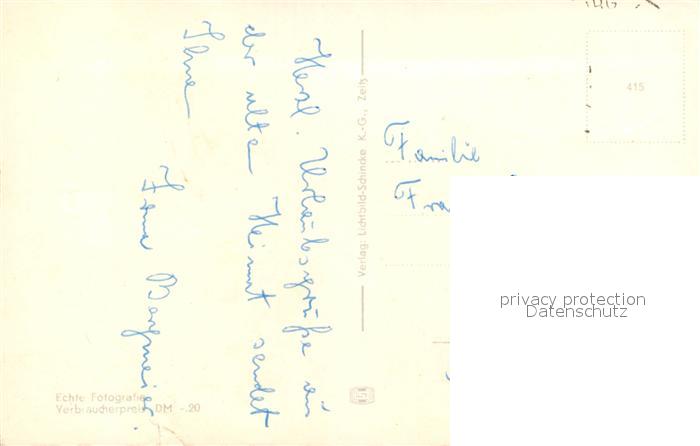 Herzl. Urlaubsgrüße aus
der alten Heimat sendet
Ihnen
Bergmeier.
Familie
Fra
415
Verlag: Lichtbild-Schincke K.-G., Zeitz
Echte Fotografie
Verbraucherpreis DM -.20
privacy protection
Datenschutz